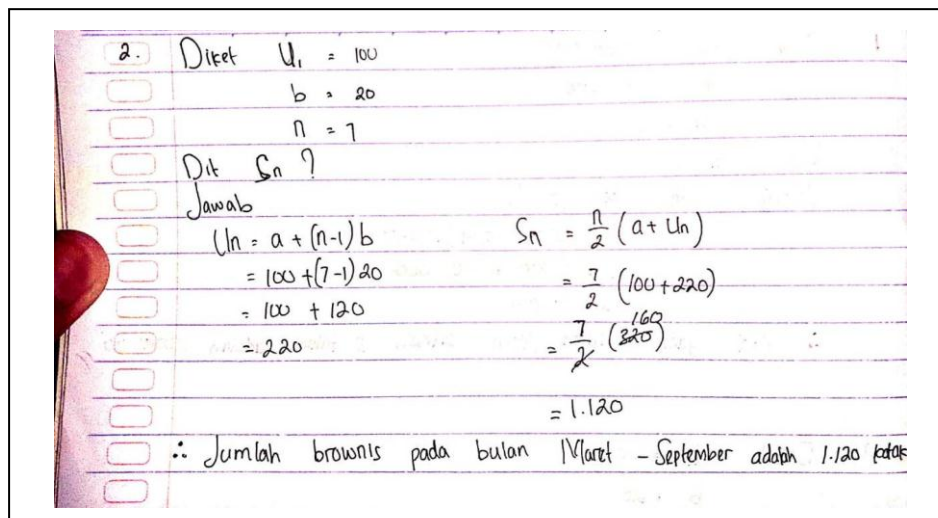 2. Diket U₁ = 100
b = 20
n = 7
Dit Sn ?
Jawab
Un = a + (n-1) b
= 100 + (7-1) 20
= 100 + 120
= 220
Sn = n/2 (a + Un)
= 7/2 (100 + 220)
160
= 7/2 (320)
= 1.120
∴ Jumlah brownis pada bulan Maret - September adalah 1.120 kotak